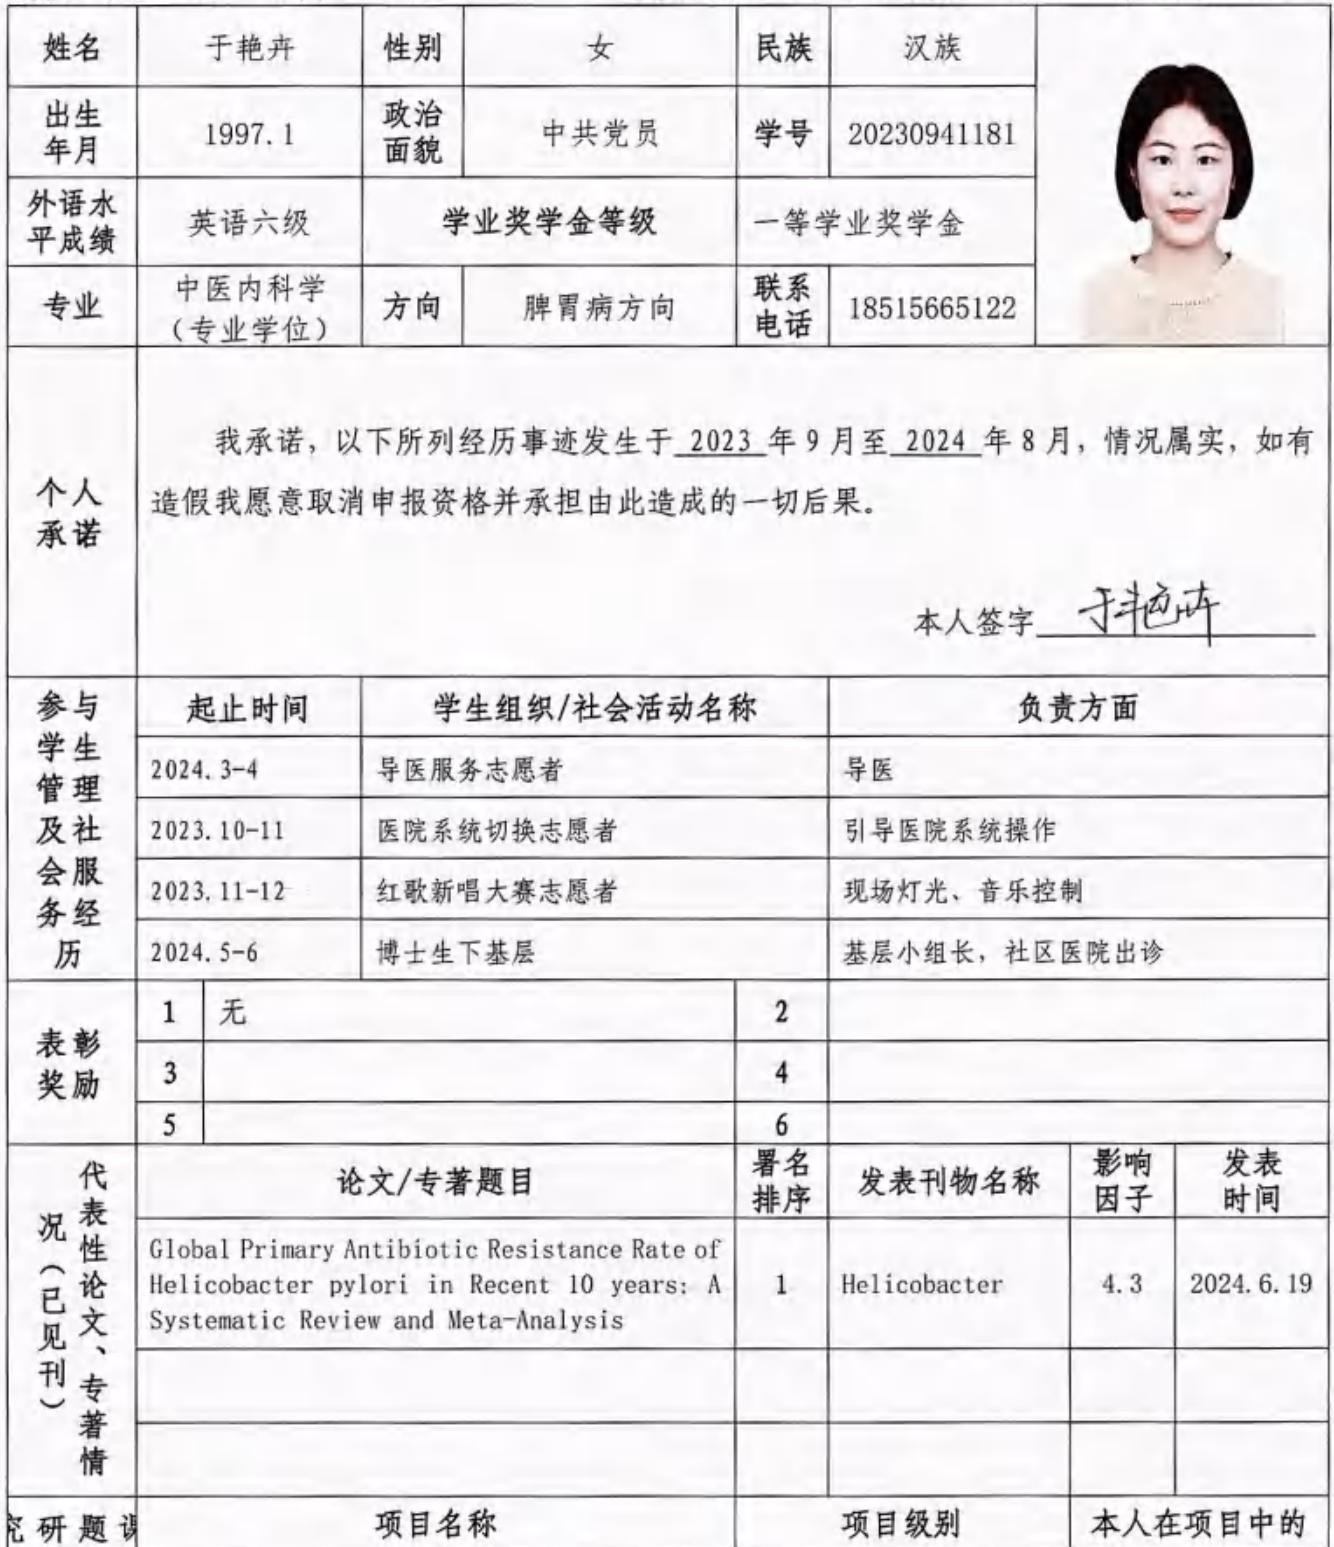 姓名 于艳卉 性别 女 民族 汉族
出生年月 1997.1 政治面貌 中共党员 学号 20230941181
外语水平成绩 英语六级 学业奖学金等级 一等学业奖学金
专业 中医内科学（专业学位） 方向 脾胃病方向 联系电话 18515665122
个人承诺
我承诺，以下所列经历事迹发生于 2023 年9月至 2024 年8月，情况属实，如有
造假我愿意取消申报资格并承担由此造成的一切后果。
本人签字 于艳卉
参与学生管理及社会服务经历
起止时间 学生组织/社会活动名称 负责方面
2024.3-4 导医服务志愿者 导医
2023.10-11 医院系统切换志愿者 引导医院系统操作
2023.11-12 红歌新唱大赛志愿者 现场灯光、音乐控制
2024.5-6 博士生下基层 基层小组长，社区医院出诊
表彰奖励
1 无 2
3 4
5 6
代表性论文、专著情况（已见刊）
论文/专著题目 署名排序 发表刊物名称 影响因子 发表时间
Global Primary Antibiotic Resistance Rate of
Helicobacter pylori in Recent 10 years: A
Systematic Review and Meta-Analysis
1 Helicobacter 4.3 2024.6.19
研题
项目名称 项目级别 本人在项目中的